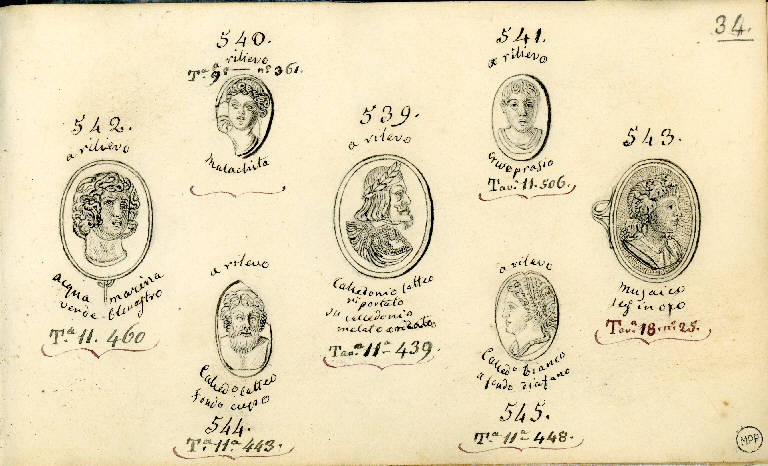 34.
540.
a rilievo
Tª. 9ª nº 361.
Malachita
541.
a rilievo
Crisoprasio
Tavª. 11. 506.
542.
a rilievo
acqua marina
verde
Tª 11. 460
539.
a rilevo
Calcedonio latteo
riportato
su calcedonio
Tavª 11ª 439.
543.
Musaico
leg in oro
Tavª 18. nº 25.
a rilevo
Calcedº latteo
fondo cupo
544.
Tª. 11ª. 443.
a rilevo
Calcedº bianco
a fondo diafano
545.
Tª 11ª 448.
MPP